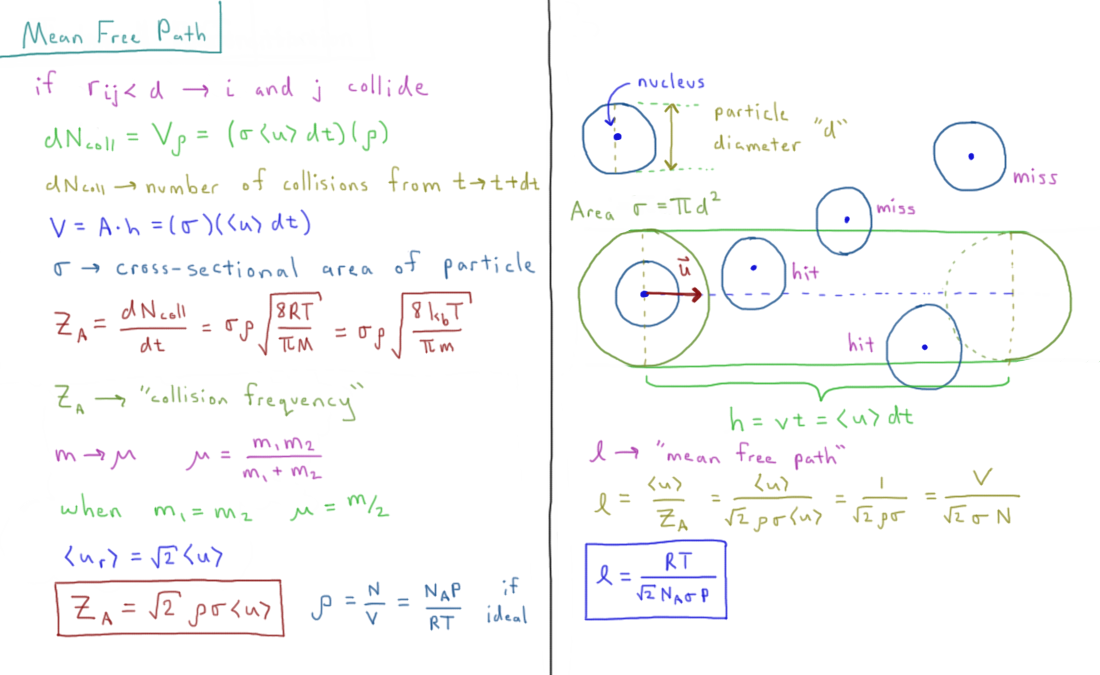 Mean Free Path
if rᵢⱼ < d → i and j collide
dN_coll = Vρ = (σ⟨u⟩dt)(ρ)
dN_coll → number of collisions from t→t+dt
V = A·h = (σ)(⟨u⟩dt)
σ → cross-sectional area of particle
Z_A = dN_coll/dt = σρ√(8RT/πM) = σρ√(8k_bT/πm)
Z_A → "collision frequency"
m → μ μ = m₁m₂/(m₁+m₂)
when m₁ = m₂ μ = m/2
⟨u_r⟩ = √2⟨u⟩
Z_A = √2 ρσ⟨u⟩ ρ = N/V = N_AP/RT if ideal
nucleus
particle diameter "d"
miss
Area σ = πd²
miss
u⃗
hit
hit
h = vt = ⟨u⟩dt
l → "mean free path"
l = ⟨u⟩/Z_A = ⟨u⟩/(√2ρσ⟨u⟩) = 1/(√2ρσ) = V/(√2σN)
l = RT/(√2N_AσP)